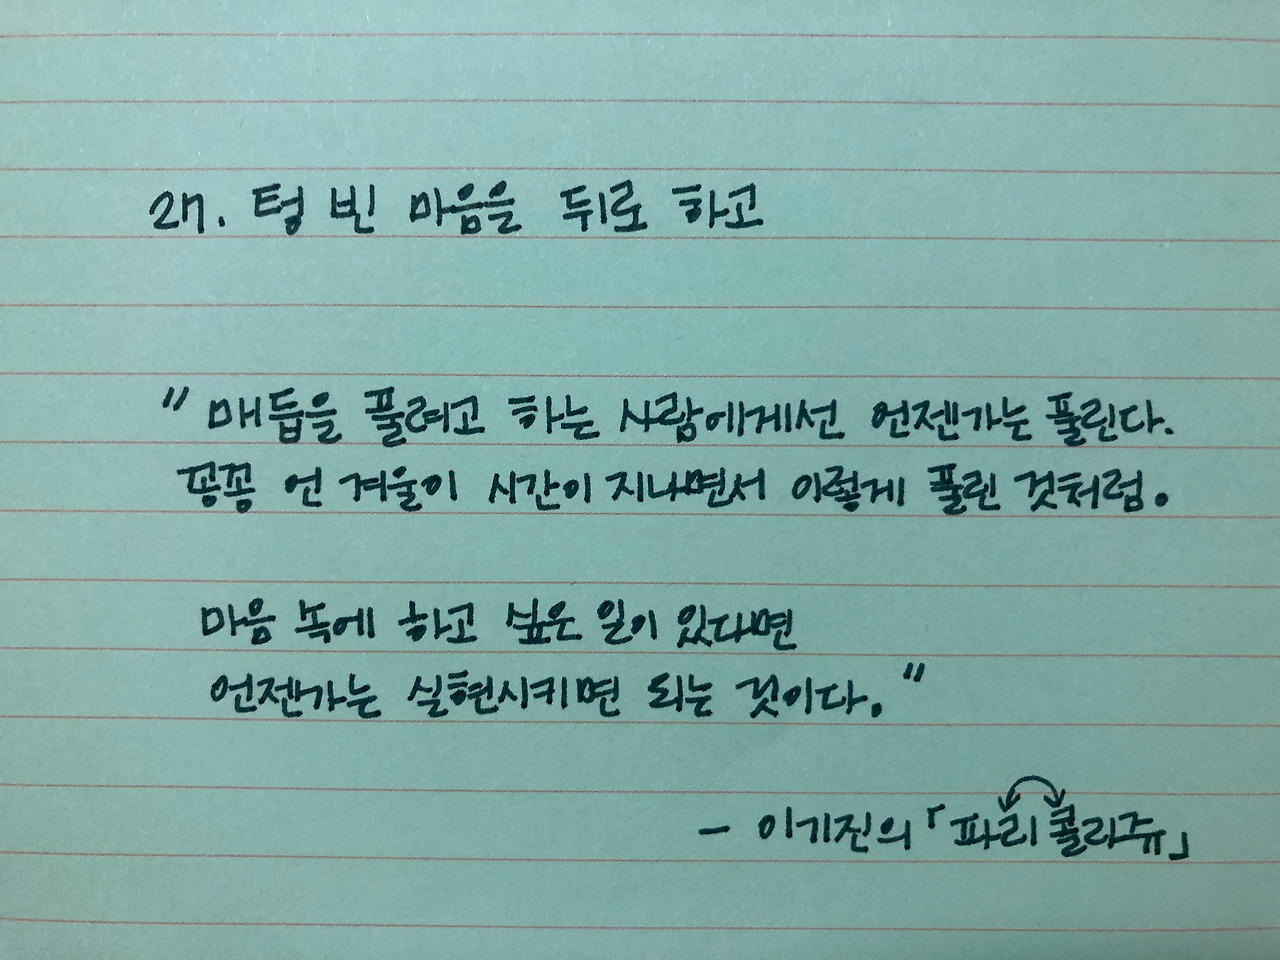 27. 텅 빈 마음을 뒤로 하고
"매듭을 풀려고 하는 사람에게선 언젠가는 풀린다.
꽁꽁 언 겨울이 시간이 지나면서 이렇게 풀린 것처럼.
마음 속에 하고 싶은 일이 있다면
언젠가는 실현시키면 되는 것이다."
- 이기진의 「파리 콜라쥬」